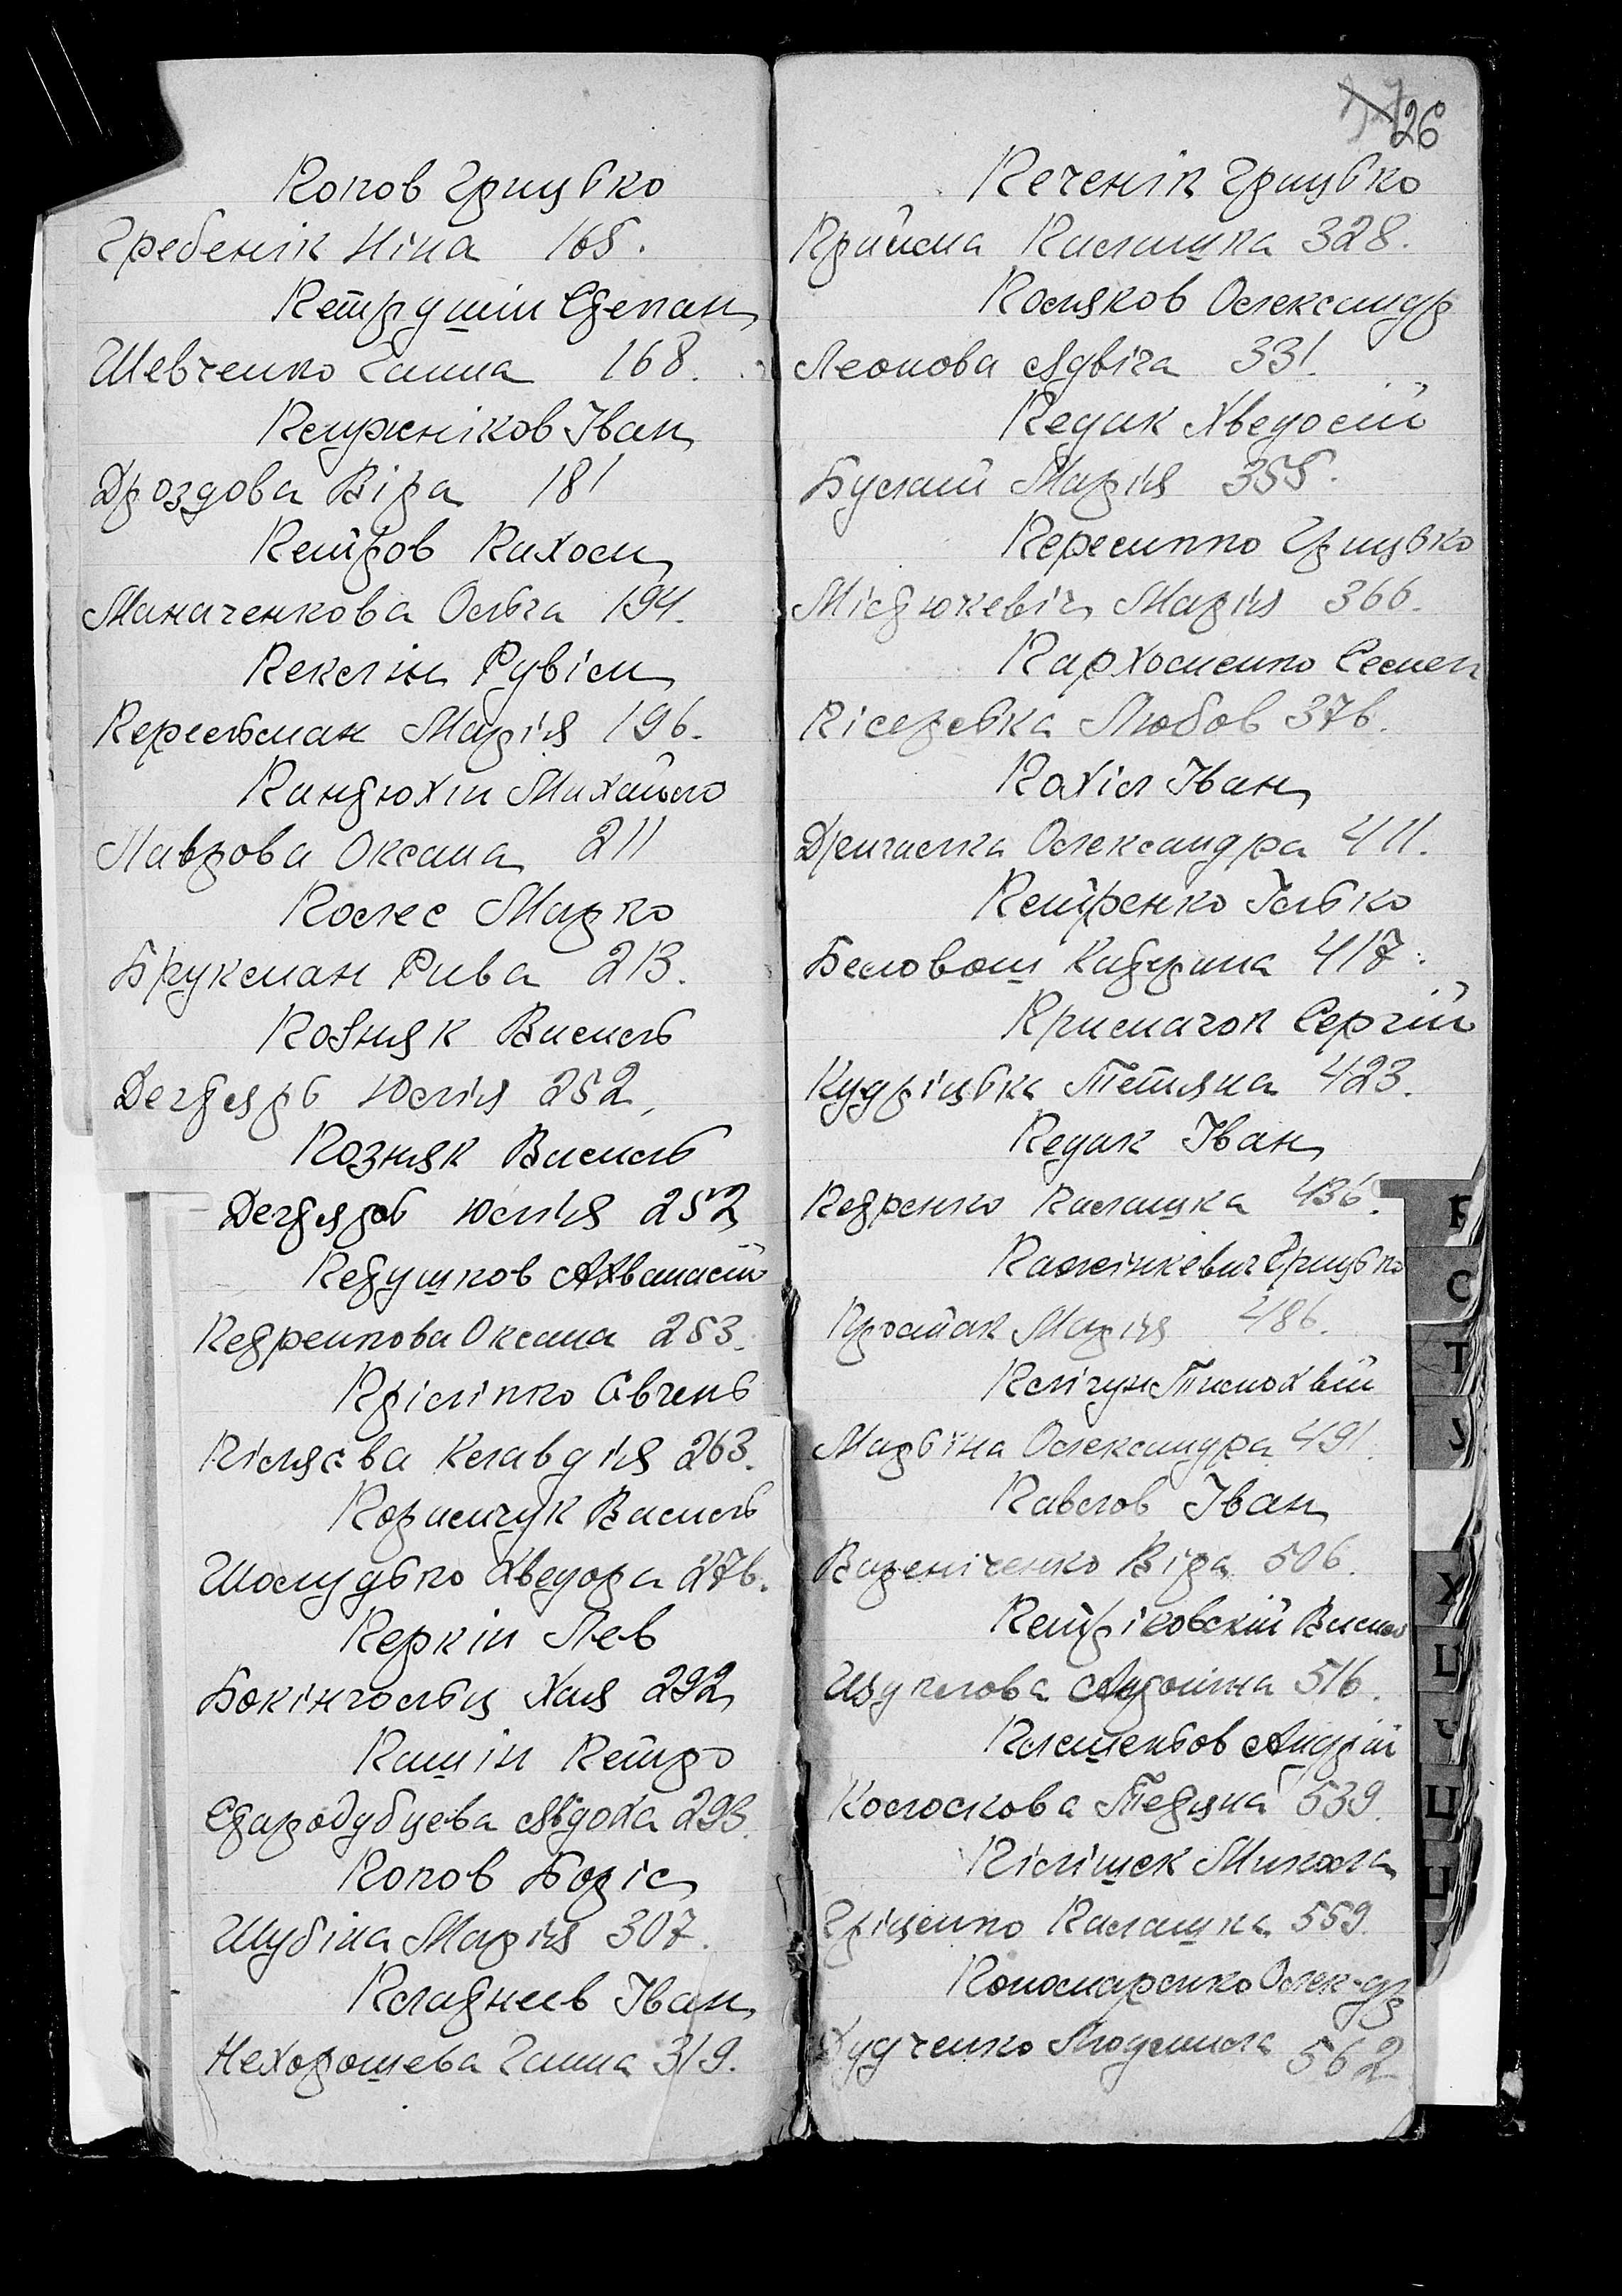 Попов Грицько
Гребенік Ніна 165.
Петрушін Степан
Шевченко Ганна 168.
Плужніков Іван
Дроздова Віра 181
Петров Пахом
Маначенкова Ольга 194.
Пеклін Рувім
Перельман Марія 196.
Пандюхін Михайло
Лаврова Оксана 211
Полес Марко
Брукман Рива 213.
Позняк Василь
Дегтярь Юлія 252,
Позняк Василь
Дегтярь Юлія 252
Петушков Ахванасій
Петренкова Оксана 253.
Пріліпко Євгень
Піляєва Клавдія 263.
Поримчук Василь
Шолудько Хведора 276.
Перкін Лев
Бокінгольц Хая 292
Пашін Петро
Стародубцева Явдоха 293.
Попов Боріс
Шубіна Марія 307.
Платнєєв Іван
Нехорошева Ганна 319.
26
Печенік Грицько
Прийма Палашка 328.
Поляков Олександр
Леонова Ядвіга 331.
Педак Хведосій
Буслай Марія 355.
Пересипко Грицько
Містюкевіч Марія 366.
Пархоменко Семен
Пісаревка Любов 376.
Похіл Іван
Дригалка Олександра 411.
Петренко Ілько
Беловош Катерина 417.
Примачок Сергій
Кудріцька Тетяна 423.
Педак Іван
Петренко Палашка 436.
Пажінкевич Грицько
Простак Марія 486.
Пелігун Тимохвій
Марьїна Олександра 491.
Павлов Іван
Вареніченко Віра 506.
Петріковскій Василь
Щукелова Акуліна 516.
Плешеньов Андрій
Колоскова Тетяна 539.
Пілішек Микола
Гріценко Палашка 559.
Пономаренко Олек-др
Худченко Людмила 562
С
Т
У
Х
Ц
Ч